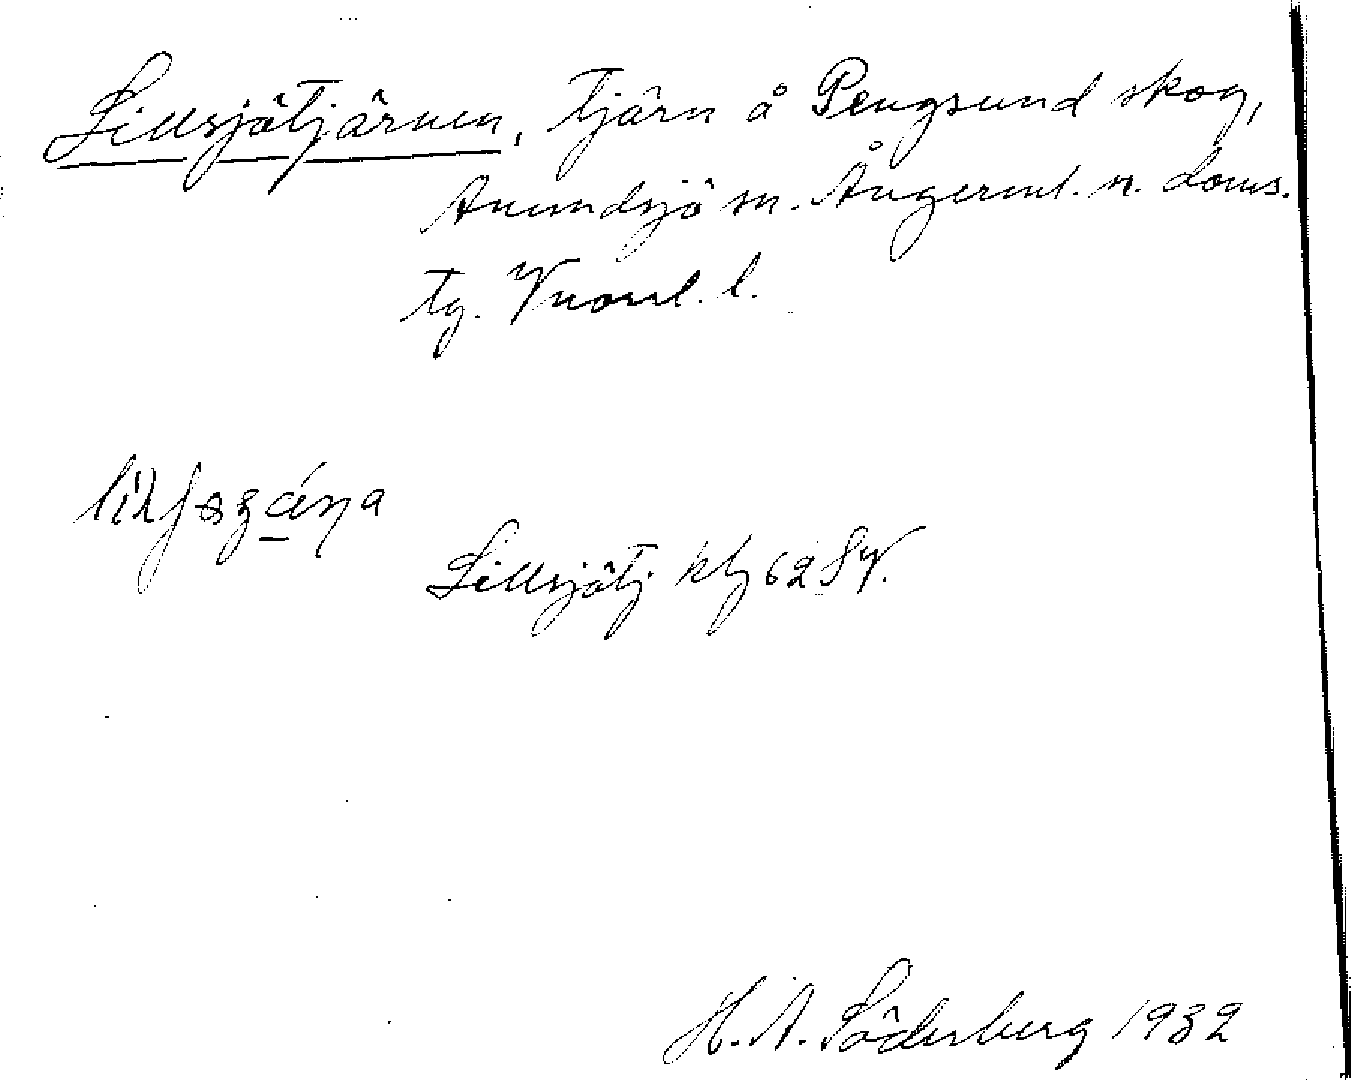 Lillsjötjärnen, tjärn å Pengsund skog,
Anundsjö sn. Ångerml. n. doms.
tg. Vnorrl. l.
Lillsjötj. kbl 62 SV.
H. A. Söderberg 1932